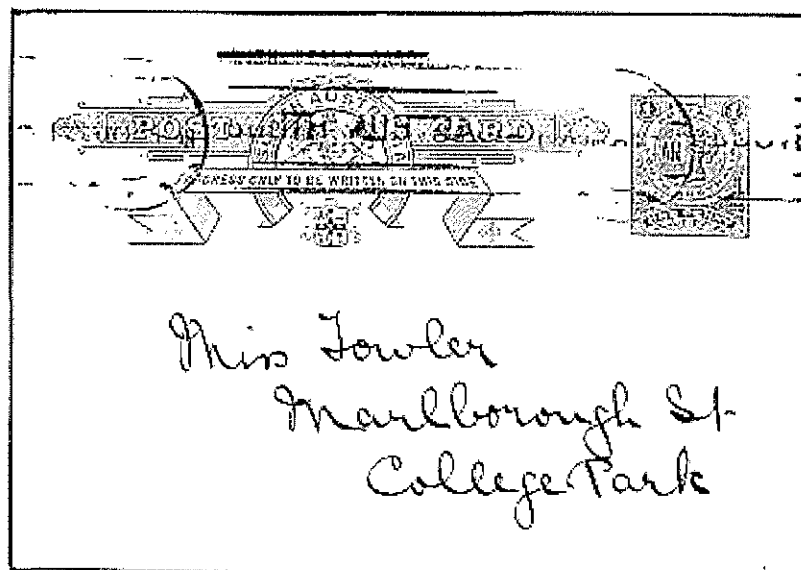 POST CARD
ADDRESS ONLY TO BE WRITTEN ON THIS SIDE
Miss Fowler
Marlborough St
College Park